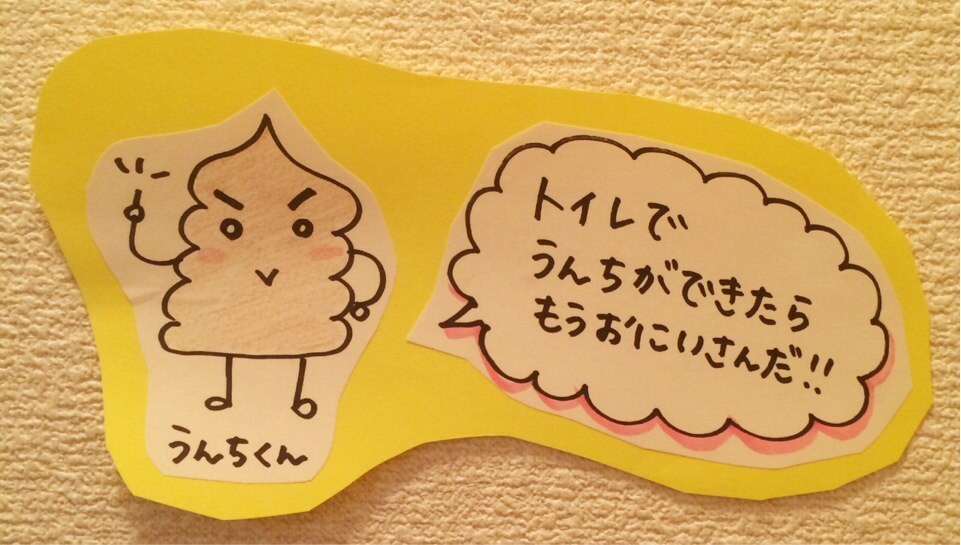 うんちくん
トイレで
うんちができたら
もうおにいさんだ!!